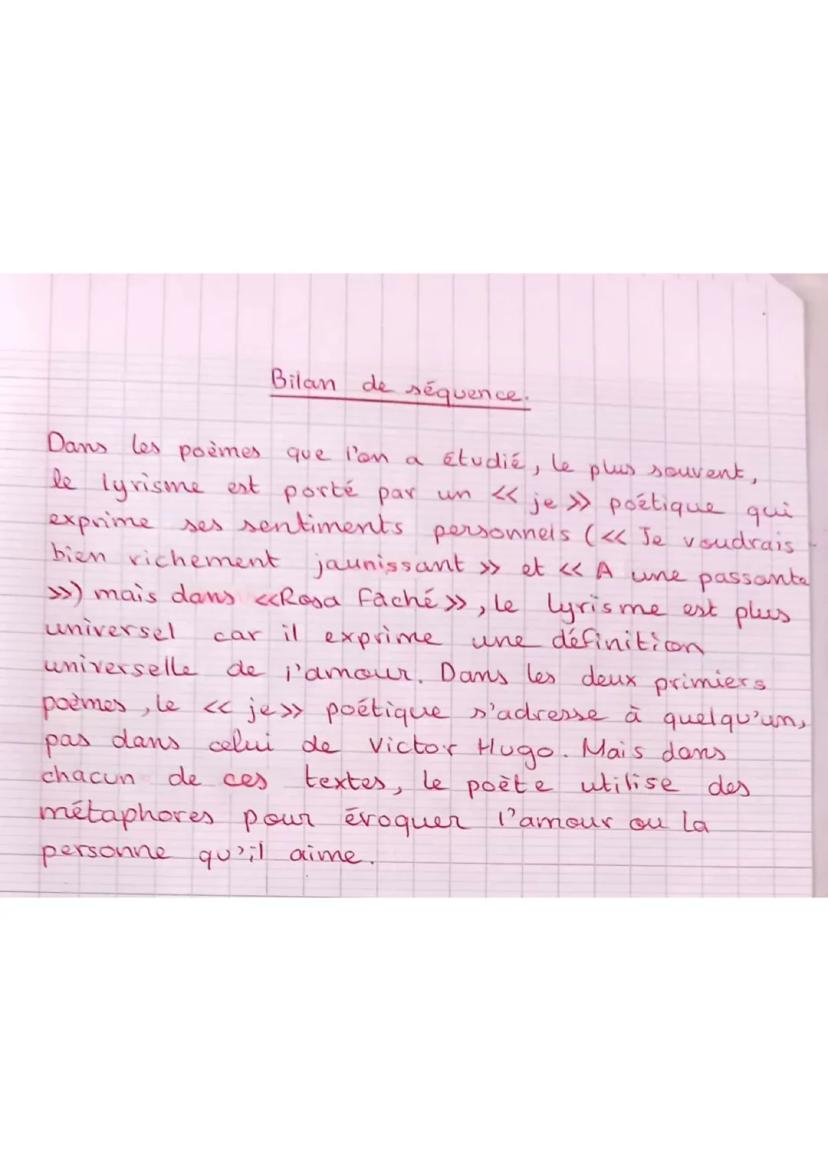 Bilan de séquence.
Dans les poèmes que l'on a étudié, le plus souvent,
le lyrisme est porté par un << je >> poétique qui
exprime ses sentiments personnels (<< Je voudrais
bien richement jaunissant >> et << A une passante
>>) mais dans <<Rosa Faché>>, le lyrisme est plus
universel car il exprime une définition
universelle de l'amour. Dans les deux primiers
poèmes, le << je>> poétique s'adresse à quelqu'un,
pas dans celui de Victor Hugo. Mais dans
chacun de ces textes, le poète utilise des
métaphores pour évoquer l'amour ou la
personne qu'il aime.